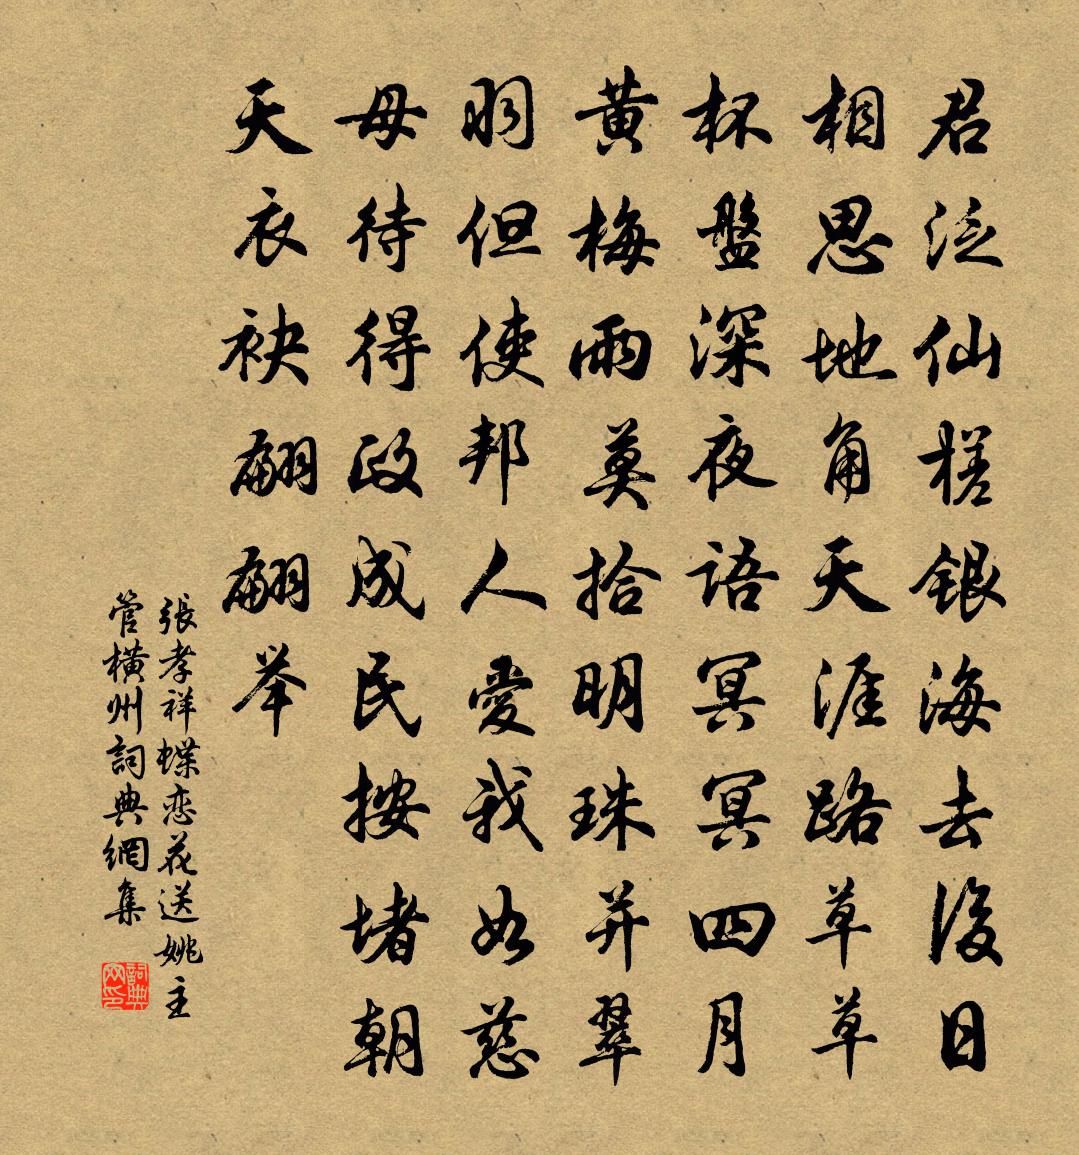 君泛仙槎银海去后日
相思地角天涯路草草
杯盤深夜语冥冥四月
黄梅雨莫拾明珠并翠
羽但使邦人愛我如慈
母待得政成民按堵朝
天衣袂翩翩举
張孝祥蝶恋花送姚主
管橫州詞典網集
詞典网印